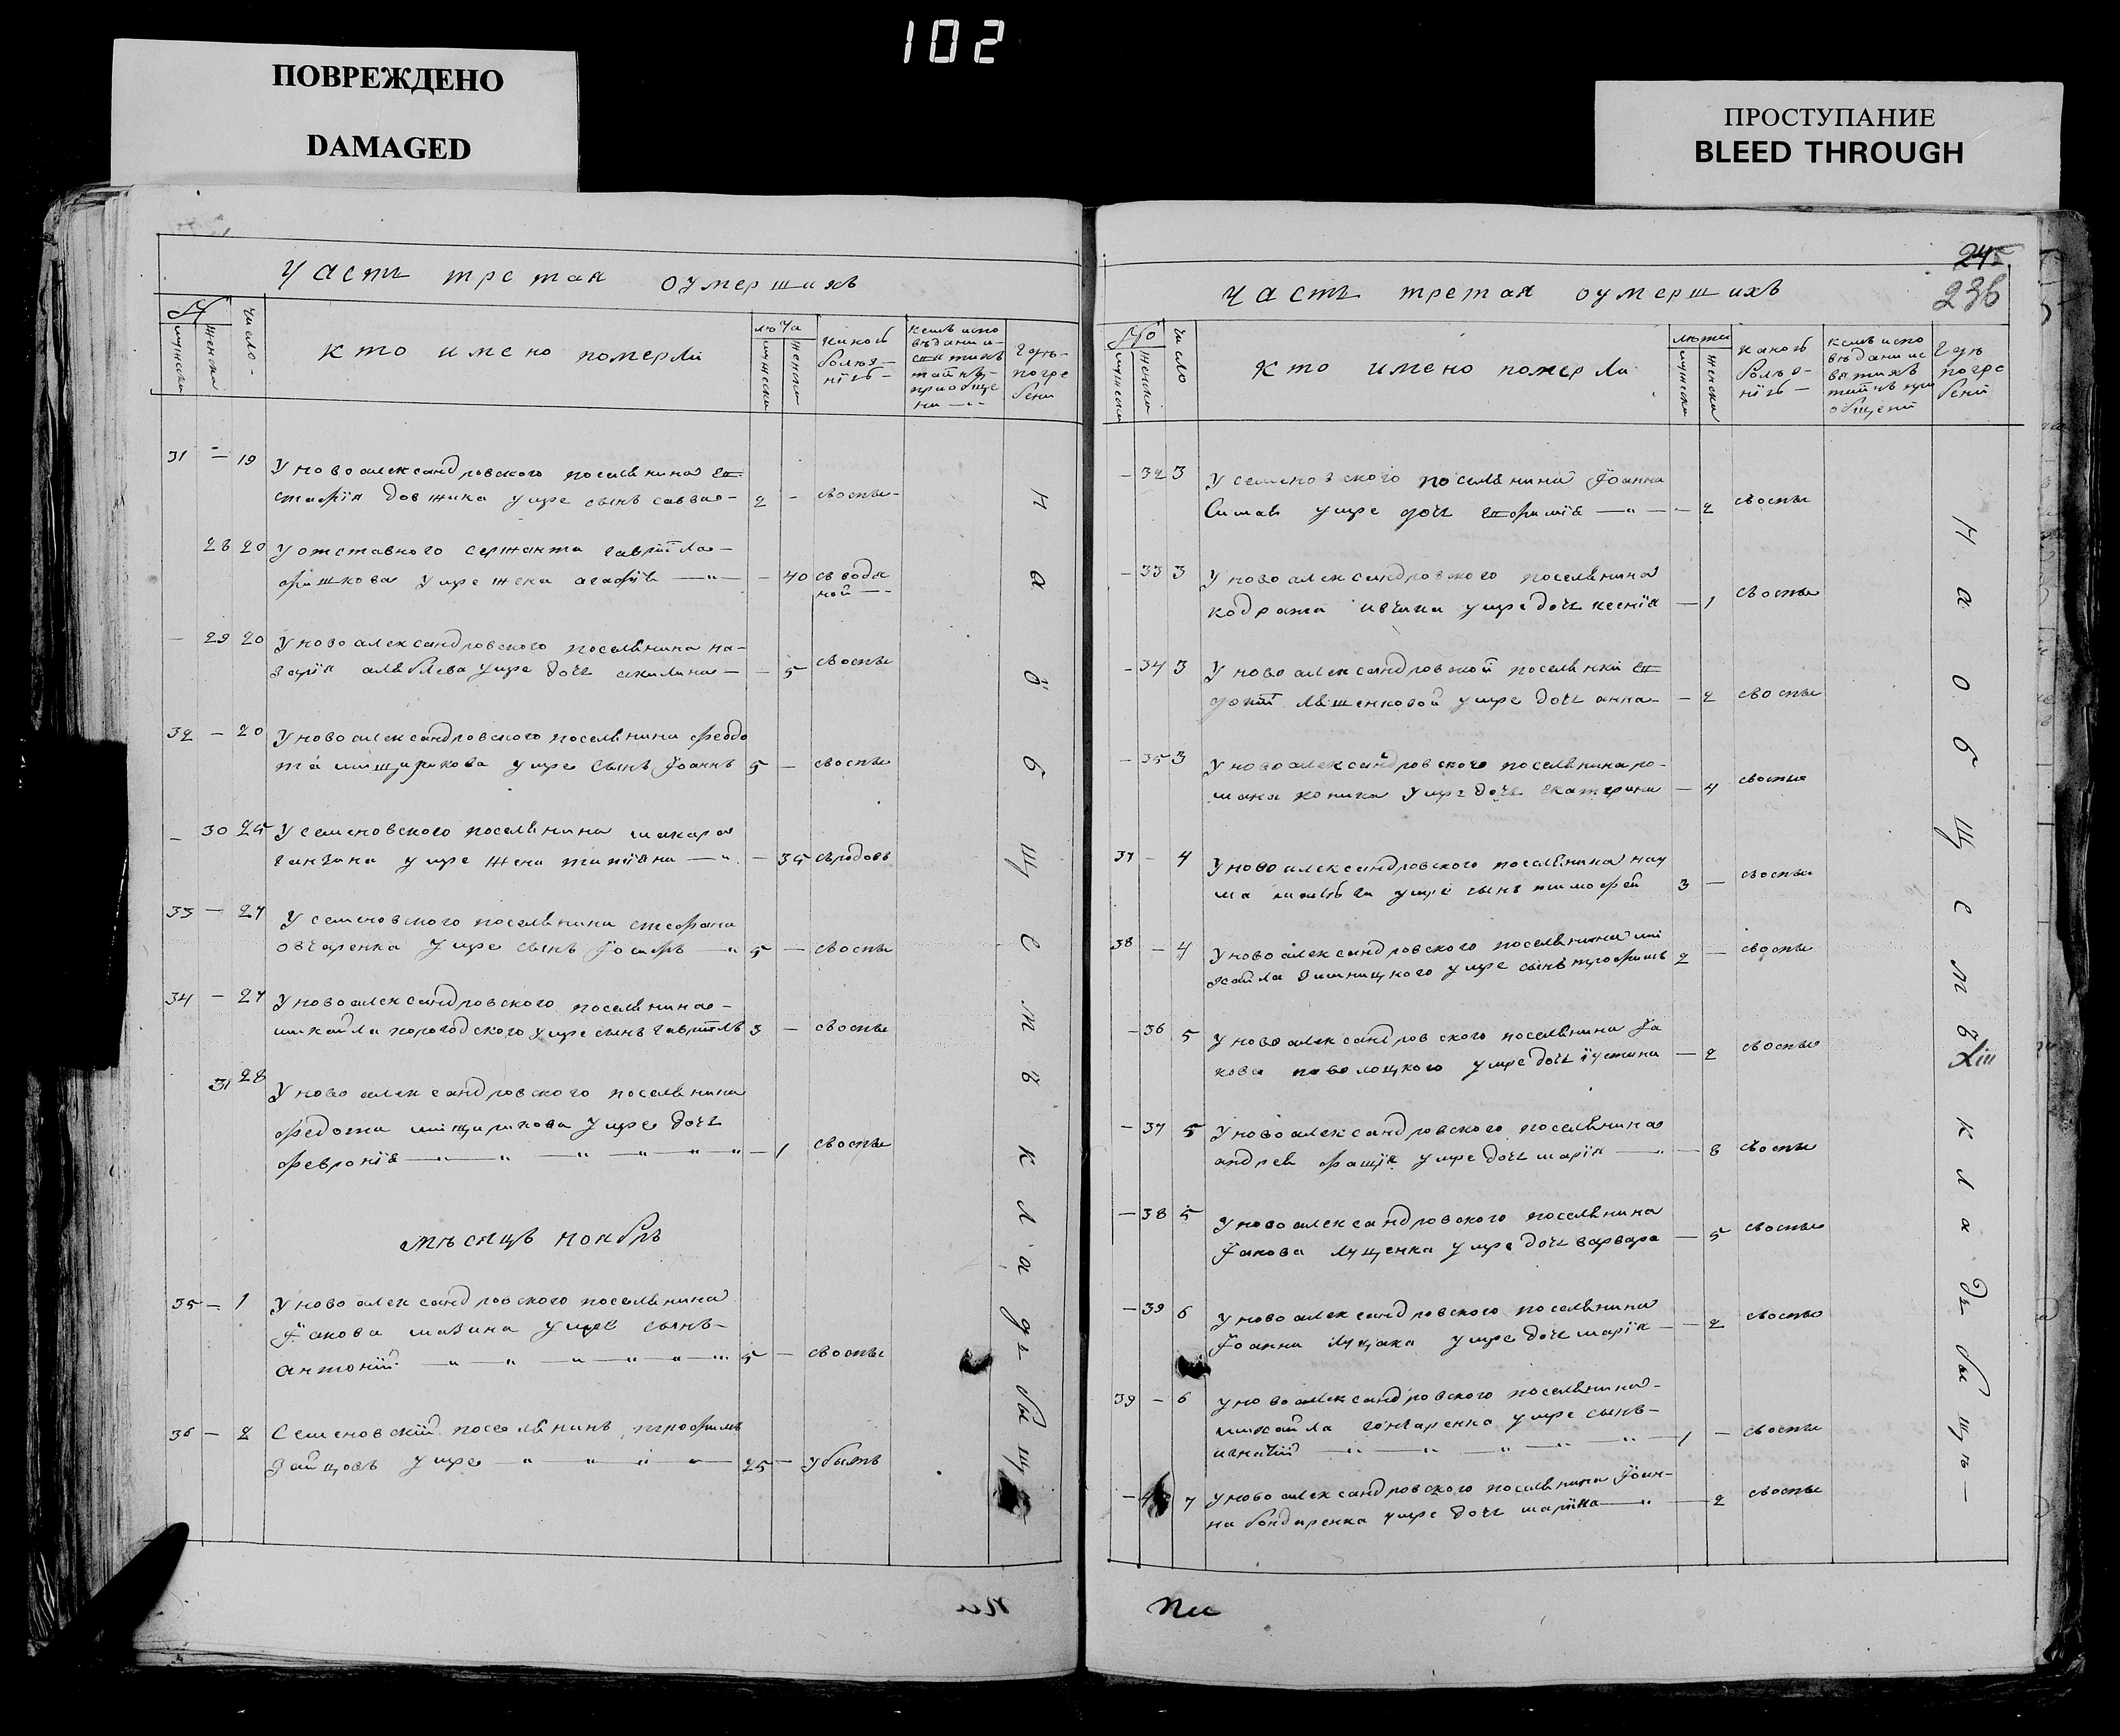 102
ПОВРЕЖДЕНО
DAMAGED
ПРОСТУПАНИЕ
BLEED THROUGH
Часть третая оумершихъ
№ число
мужеска женска
кто имено померли
лѣта
мужеска женска
какой болѣзнїю
кемъ исповѣданы и святихъ тайнъ приобщены
Где погребени
31 – 19 У новоалександровского поселѣнина Ев
стафія Довжика умре сынъ савва – 2 – съ оспы
28 20 У отставного сержанта гавріила
Фишкова умре жена агафія – 40 съ водя
ной
– 29 20 У новоалександровского поселѣнина на-
зарія умре дочь акилина – – 5 съ оспы
32 – 20 У новоалександровского поселѣнина федо
та мищирикова умре сынъ Іоаннъ 5 – съ оспы
– 30 25 У семеновского поселѣнина макара
ганзина умре жена татіяна – 35 съ родовъ
33 – 27 У семеновского поселѣнина стефана
овчаренка умре сынъ Іосифъ 5 – съ оспы
34 – 27 У новоалександровского поселѣнина
михайла порогодского умре сынъ гавріилъ 3 – съ оспы
31 28 У новоалександровского поселѣнина
федота мищирикова умре дочь
февронія – 1 съ оспы
мѣсяцъ ноябрь
35 – 1 У новоалександровского поселѣнина
Іакова мазина умре сынъ
антоній 5 – съ оспы
36 – 2 Семеновскій поселѣнинъ трофимъ
Зайцовъ умре 25 – убытъ
на общемъ кладьбищѣ
пи
245
236
Часть третая оумершихъ
№ число
мужеска женска
кто имено померли
лѣта
мужеска женска
какой болѣзнїю
кемъ исповѣдани и святихъ тайнъ приобщени
Где погребени
– 32 3 У семеновского поселѣнина Іоанна
умре дочь Евфимія – 2 съ оспы
– 33 3 У новоалександровского поселѣнина
кодрата ивчика умре дочь ксенія – 1 съ оспы
– 34 3 У новоалександровской поселѣнки Ев
докіи лѣшенковой умре дочь анна – 2 съ оспы
– 35 3 У новоалександровского поселѣнина ро-
мана коника умре дочь екатерина – 4 съ оспы
37 – 4 У новоалександровского поселѣнина нау
ма умре сынъ тимофей 3 – съ оспы
38 – 4 У новоалександровского поселѣнина ми
хайла Зимницкого умре сынъ трофимъ 2 – съ оспы
– 36 5 У новоалександровского поселѣнина Іа
кова поволоцкого умре дочь іустина – 2 съ оспы
– 37 5 У новоалександровского поселѣнина
андрея фащія умре дочь марія – 8 съ оспы
– 38 5 У новоалександровского поселѣнина
Іакова луценка умре дочь варвара – 5 съ оспы
– 39 6 У новоалександровского поселѣнина
Іоанна луцака умре дочь марія – 2 съ оспы
39 – 6 У новоалександровского поселѣнина
михайла гончаренка умре сынъ
игнатій 1 – съ оспы
– 7 У новоалександровского поселѣнина Іоан-
на бондаренка умре дочь маріна – 2 съ оспы
на общемъ кладьбищѣ
пи